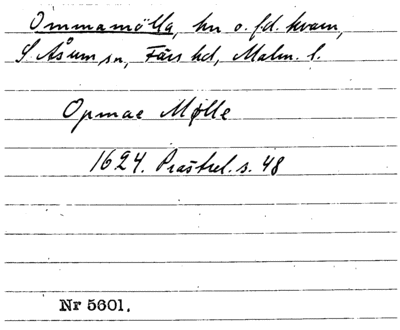 Ommamölla, hn o. f.d. kvarn,
S. Åsum sn, Färs hd, Malm. l.
Opmae Mølle
1624. Prästrel. s. 48
Nr 5601.